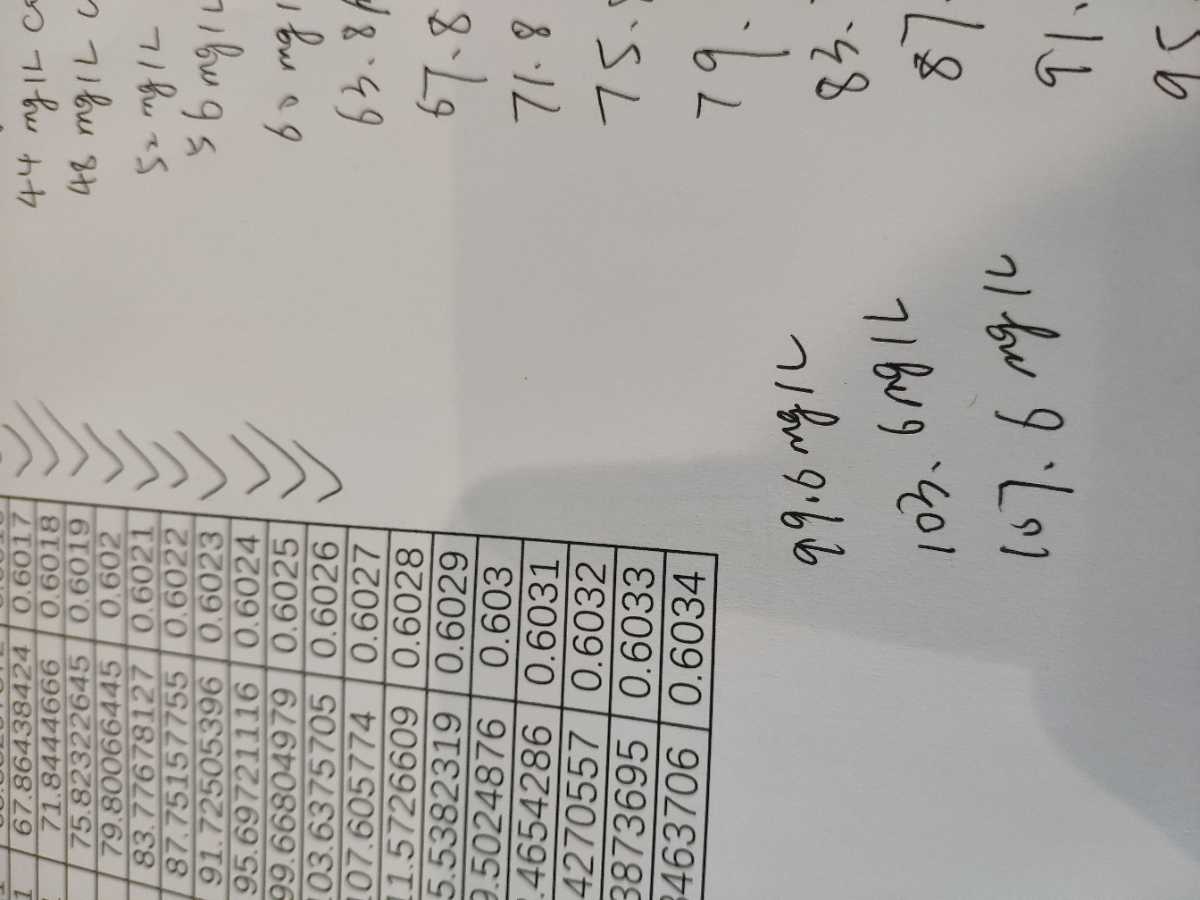 67.86438424 0.6017
71.84444666 0.6018
75.82322645 0.6019
79.80066445 0.602
83.77678127 0.6021
87.75157755 0.6022
91.72505396 0.6023
95.69721116 0.6024
99.66804979 0.6025
103.6375705 0.6026
107.605774 0.6027
11.5726609 0.6028
5.5382319 0.6029
9.5024876 0.603
.4654286 0.6031
4270557 0.6032
3873695 0.6033
3463706 0.6034
44 mg/L
48 mg/L
52 mg/L
56 mg/L
60 mg/L
63.8
67.8
71.8
75.
79.
83.
87.
91.
95
99.6 mg/L
103.6 mg/L
107.6 mg/L